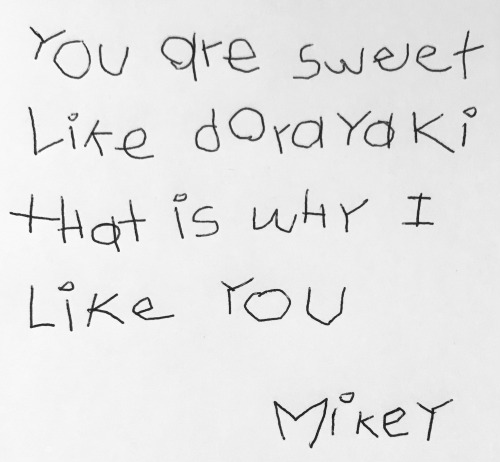 You are sweet
Like dorayaki
that is why I
Like you
Mikey